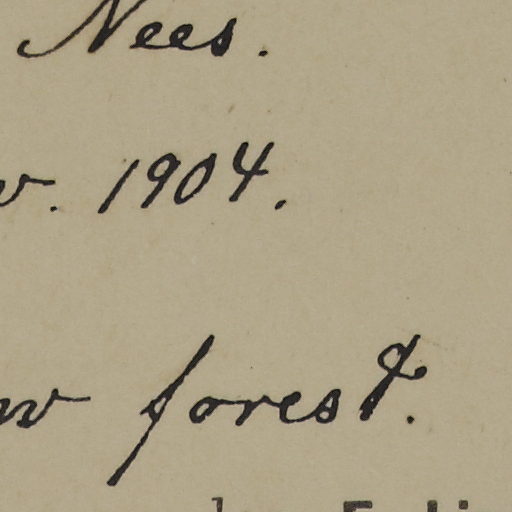 Nees.
v. 1904.
w forest.